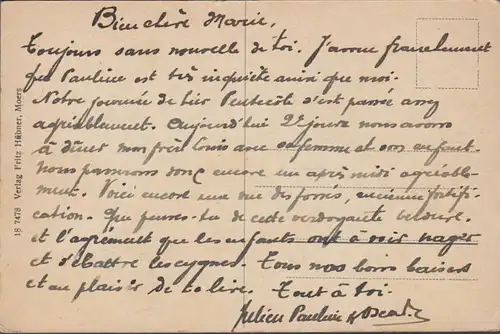 Bien chère Marie,
Toujours sans nouvelle de toi. J'avoue franchement
que Pauline est très inquiète ainsi que moi.
Notre journée de hier Pentecôte s'est passé assez
agréablement. Aujourd'hui 2e jour nous avons
à dîner mon frère Louis avec sa femme et son enfant.
Nous passerons donc encore un après midi agréable-
ment. Voici encore une vue des fossés, ancienne fortifi-
cation. Que penses-tu de cette verdoyante verdure.
et l'agrément que les enfants ont à voir nager
et s'ébattre les cygnes. Tous nos bons baisers
et au plaisir de te lire. Tout à toi.
Julien Pauline &
18 7478 Verlag Fritz Hübner, Moers